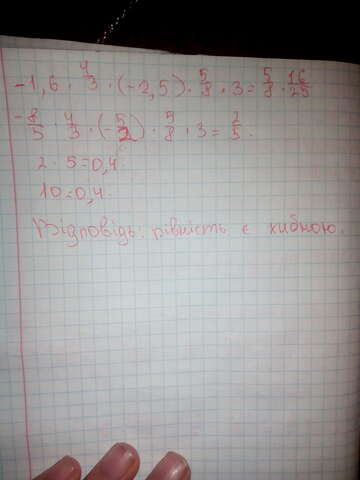 -1,6 · 4/3 · (-2,5) · 5/8 · 3 = 5/8 · 16/25
-8/5 · 4/3 · (-5/2) · 5/8 · 3 = 2/5.
2 · 5 = 0,4.
10 = 0,4.
Відповідь: рівність є хибною.